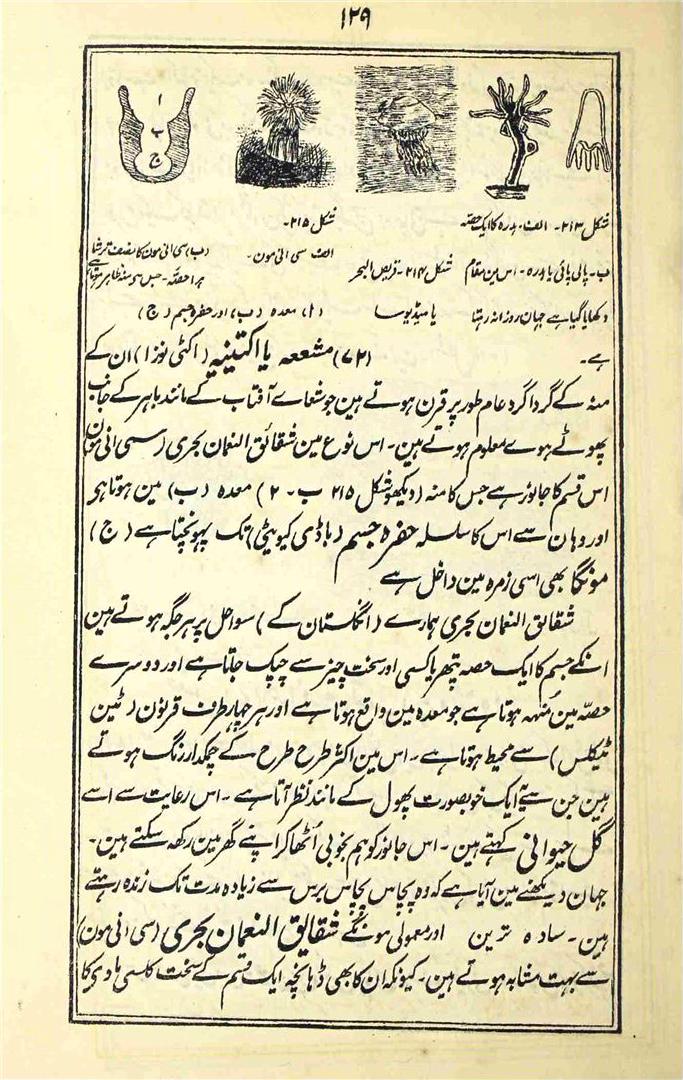 ۱۲۹
ا
ب
ج
شکل ۲۱۳۔ الف۔ ہدرہ کا ایک حصّہ
ب۔ پالی پائی یا ہدرہ۔ اس مین مقام
دکھایا گیا ہے جہان روزانہ رہتا
ہے۔
شکل ۲۱۴۔ قریص البحر
یا میڈیوسا
شکل ۲۱۵۔
الف سی انی مون۔
(ب) سی انی مون کا نصف ترشا
ہوا حصّہ۔ جس سے منہ ظاہر ہوتا ہے
(ا) معدہ (ب) اور حفرہ جسم (ج)
(۷۲) مشععہ یا اکتینیہ (اکٹی نوزا) ان کے
منہ کے گرداگرد عام طور پر قرن ہوتے ہین جو شعاے آفتاب کے مانند باہر کے جانب
پھوٹے ہوے معلوم ہوتے ہین۔ اس نوع مین شقائق النعمان بحری (سی انی مون)
اس قسم کا جانور ہے جس کا منہ (دیکھو شکل ۲۱۵ ب۔ ۲) معدہ (ب) مین ہوتا ہی
اور وہان سے اس کا سلسلہ حفرہ جسم (باڈی کیویٹی) تک پہونچتا ہے (ج)
مونگا بھی اسی زمرہ مین داخل ہے
شقائق النعمان بحری ہمارے (انگلستان کے) سواحل پر ہر جگہ ہوتے ہین
انکے جسم کا ایک حصہ پتھر یا کسی اور سخت چیز سے چپک جاتا ہے اور دوسرے
حصّہ مین مُنہہ ہوتا ہے جو معدہ مین واقع ہوتا ہے اور ہر چہار طرف قرنون (ٹین
ٹیکلس) سے محیط ہوتا ہے۔ اس مین اکثر طرح طرح کے چمکدار رنگ ہوتے
ہین جن سے یہ ایک خوبصورت پھول کے مانند نظر آتا ہے۔ اس رعایت سے اسے
گل حیوانی کہتے ہین۔ اس جانور کو ہم بخوبی اُٹھا کر اپنے گھر مین رکھ سکتے ہین۔
جہان دیکھنے مین آیا ہے کہ وہ پچاس پچاس برس سے زیادہ مدت تک زندہ رہتے
ہین۔ سادہ ترین اور معمولی مونگے شقایق النعمان بحری (سی انی مون)
سے بہت مشابہ ہوتے ہین۔ کیونکہ ان کا بھی ڈہانچہ ایک قسم کے سخت کلسی مادی کا